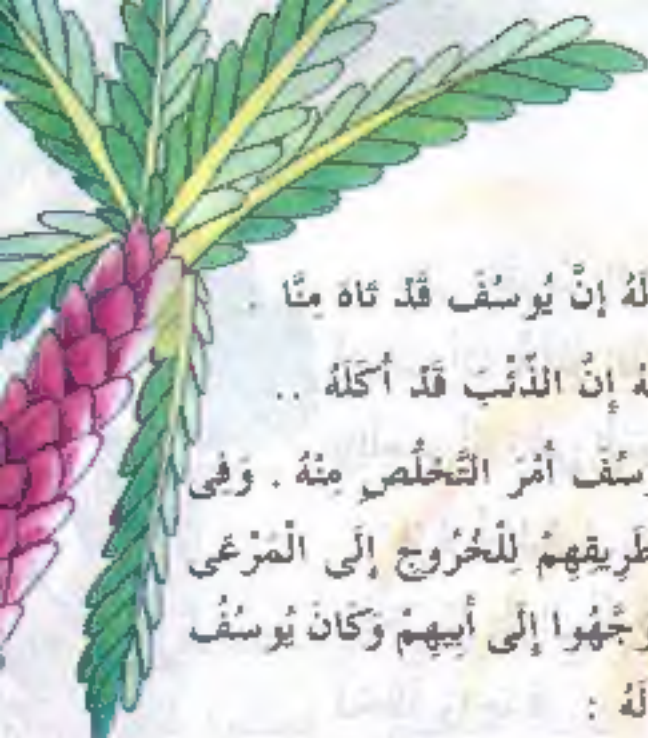 لَهُ إِنَّ يُوسُفَ قَدْ تَاهَ مِنَّا .
إِنَّ الذِّئْبَ قَدْ أَكَلَهُ ..
أَمْرَ التَّخَلُّصِ مِنْهُ . وَفِى
طَرِيقِهِمْ لِلْخُرُوجِ إِلَى الْمَرْعَى
إِلَى أَبِيهِمْ وَكَانَ يُوسُفُ
لَهُ :